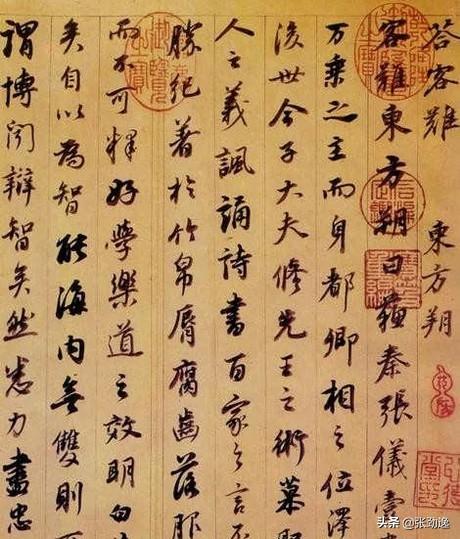 答客難 東方朔
客難東方朔曰蘇秦張儀壹
万乗之主而身都卿相之位澤
後世今子大夫修先王之術慕
人之義諷誦詩書百家之言不
勝紀著於竹帛脣腐齒落服
而不可釋好學樂道之效明白
矣自以為智能海内無雙則
謂博聞辯智矣然悉力盡忠
头条 @张劲逸